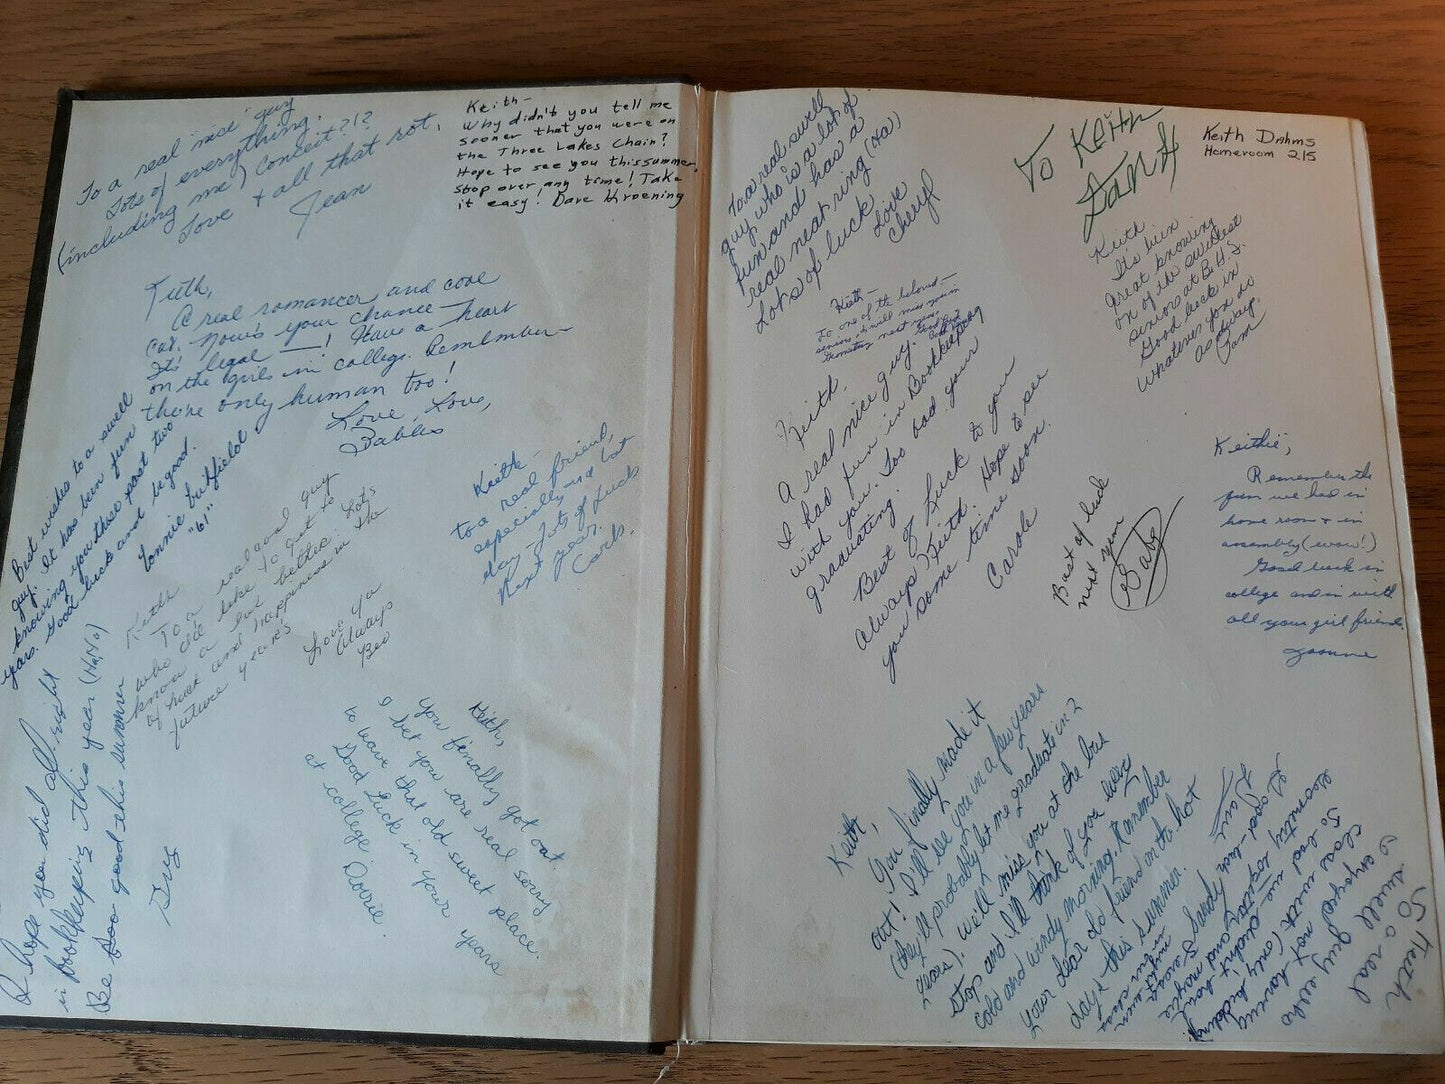 To a real "nice" guy
Lots of everything.
(including me) Conceit?!?
Love + all that rot,
Jean
Keith-
Why didn't you tell me
sooner that you were on
the Three Lakes Chain?
Hope to see you this summer,
stop over any time! Take
it easy! Dave Kroening
Keith,
A real romancer and cool
cat. Now's your chance -
It's legal —! Have a heart
on the girls in college. Remember -
they're only human too!
Love, Love,
Babbs
Best wishes to a swell
guy. It has been fun
knowing you these past two
years. Good luck and be good.
"61"
Keith-
to a real friend,
especially and last
day - Lots of Luck
Next year.
Carls.
Keith
To a real cool guy
who I'd like to get to
know a lot better. Lots
of luck and happiness in the
future years.
Love Ya
Always
Bev
I hope you did all right
in Bookkeeping this year (Ha Ha)
Be good this summer
Guy
Keith,
You finally got out.
I bet you are real sorry
to leave that old sweet place.
Good Luck in your years
at college.
Dorrie.
To a real swell
guy who is a lot of
fun and has a
real neat ring (Ha)
Lots of luck
Love
Cheryl
To Keith
Keith Dahms
Homeroom 215
Keith
It's been
great knowing
on of the sweetest
seniors at B.H.S.
Good luck in
Whatever you do
as always,
Pam
Keith-
To one of the
seniors I will miss you in
next year.
Keith.
A real nice guy.
I had fun in Bookkeeping
with you. Too bad your
graduating.
Best of Luck to your
always, Keith. Hope to see
you some time soon.
Carole
Best of luck
next year
Gary
Keithie,
Remember the
fun we had in
home room + in
assembly (wow!)
Good luck in
college and in with
all your girl friends.
Joanne
Keith,
You finally made it
out! I'll see you in a few years
(they'll probably let me graduate in 2
years). We'll miss you at the bus
stop and I'll think of you every
cold and windy morning. Remember
your dear old friend on to hot
days this summer.
Sandy
Keith
To a real
swell guy who
I enjoyed not having
class with (only kidding)
To bad we didn't have